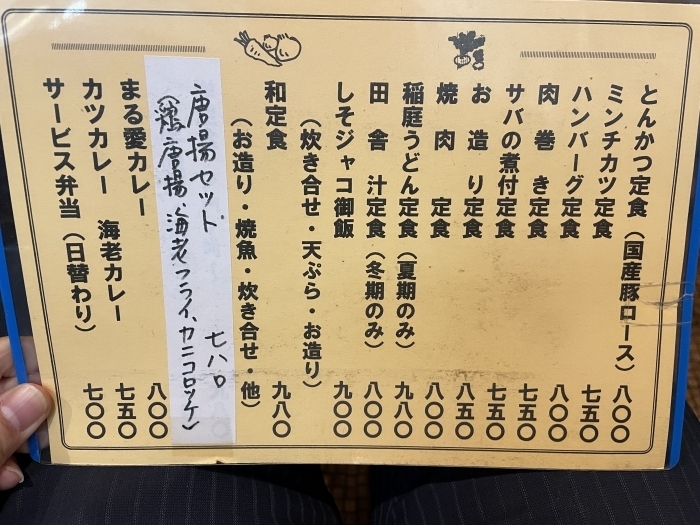 とんかつ定食（国産豚ロース） 八〇〇
ミンチカツ定食 七五〇
ハンバーグ定食 八〇〇
肉巻き定食 七五〇
サバの煮付定食 七五〇
お造り定食 八五〇
焼肉定食 八〇〇
稲庭うどん定食（夏期のみ） 九八〇
田舎汁定食（冬期のみ） 八〇〇
しそジャコ御飯 九〇〇
（炊き合せ・天ぷら・お造り）
和定食 九八〇
（お造り・焼魚・炊き合せ・他）
唐揚セット 七八〇
（鶏唐揚、海老フライ、カニコロッケ）
まる愛カレー 八〇〇
カツカレー 海老カレー 七五〇
サービス弁当（日替わり） 七〇〇